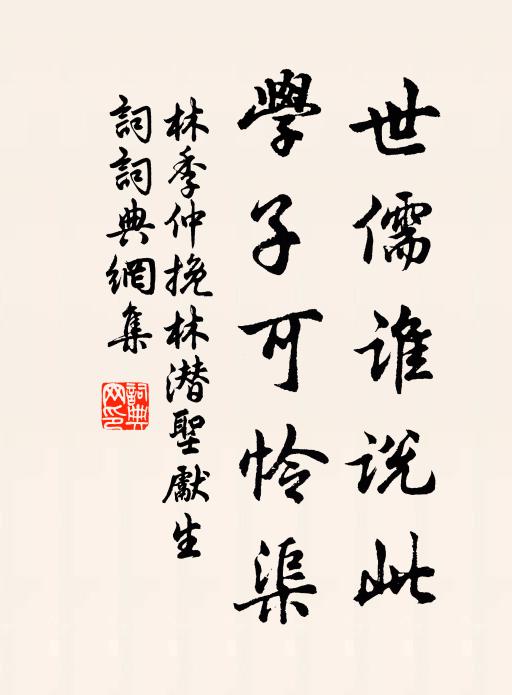 世儒谁说此
學子可怜渠
林季仲挽林潜聖獻生
詞詞典網集
詞典网印